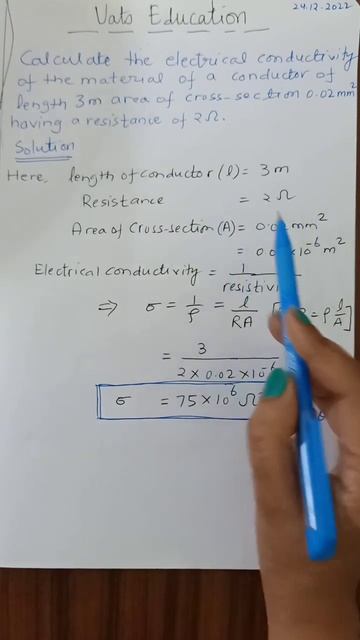 Vats Education
24.12.2022
Calculate the electrical conductivity
of the material of a conductor of
length 3m area of cross-section 0.02 mm²
having a resistance of 2Ω.
Solution
Here, length of conductor (l) = 3m
Resistance = 2Ω
Area of Cross-section (A) = mm²
= 10⁻⁶ m²
Electrical conductivity = 1 /
⇒ σ = 1/ρ = l/RA [ = ρ l/A]
= 3 / 2 × 0.02 × 10⁻⁶
σ = 75 × 10⁶